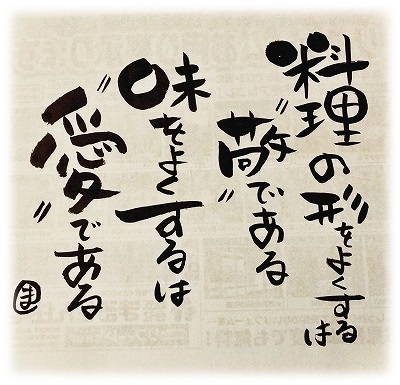 料理の形をよくするは
"敬"である
味をよくするは
"愛"である
ま